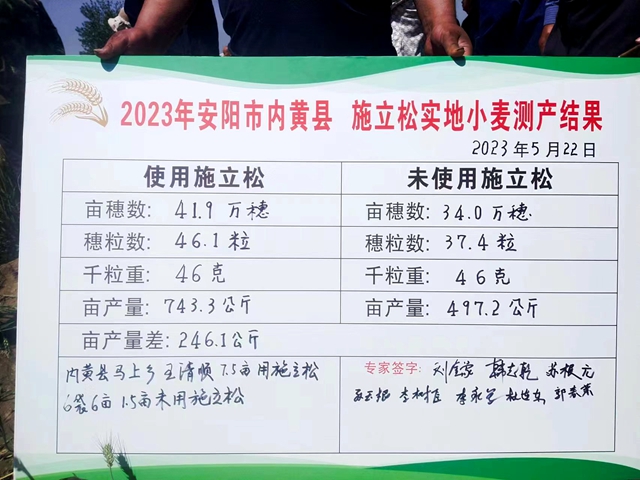 2023年安阳市内黄县 施立松实地小麦测产结果
2023年5月22日
使用施立松 未使用施立松
亩穗数: 41.9万穗 亩穗数: 34.0万穗
穗粒数: 46.1粒 穗粒数: 37.4粒
千粒重: 46克 千粒重: 46克
亩产量: 743.3公斤 亩产量: 497.2公斤
亩产量差: 246.1公斤
内黄县马上乡王清顺7.5亩用施立松
6袋6亩 1.5亩未用施立松
专家签字: